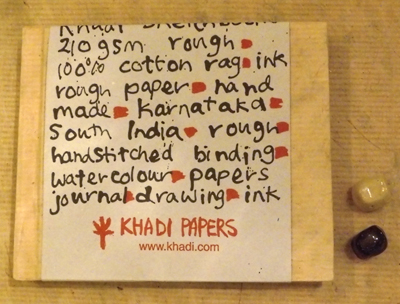 Khadi Sketchbooks
210gsm rough
100% cotton rag ink
rough paper hand
made Karnataka
South India rough
handstitched binding
watercolour papers
journal drawing ink
KHADI PAPERS
www.khadi.com